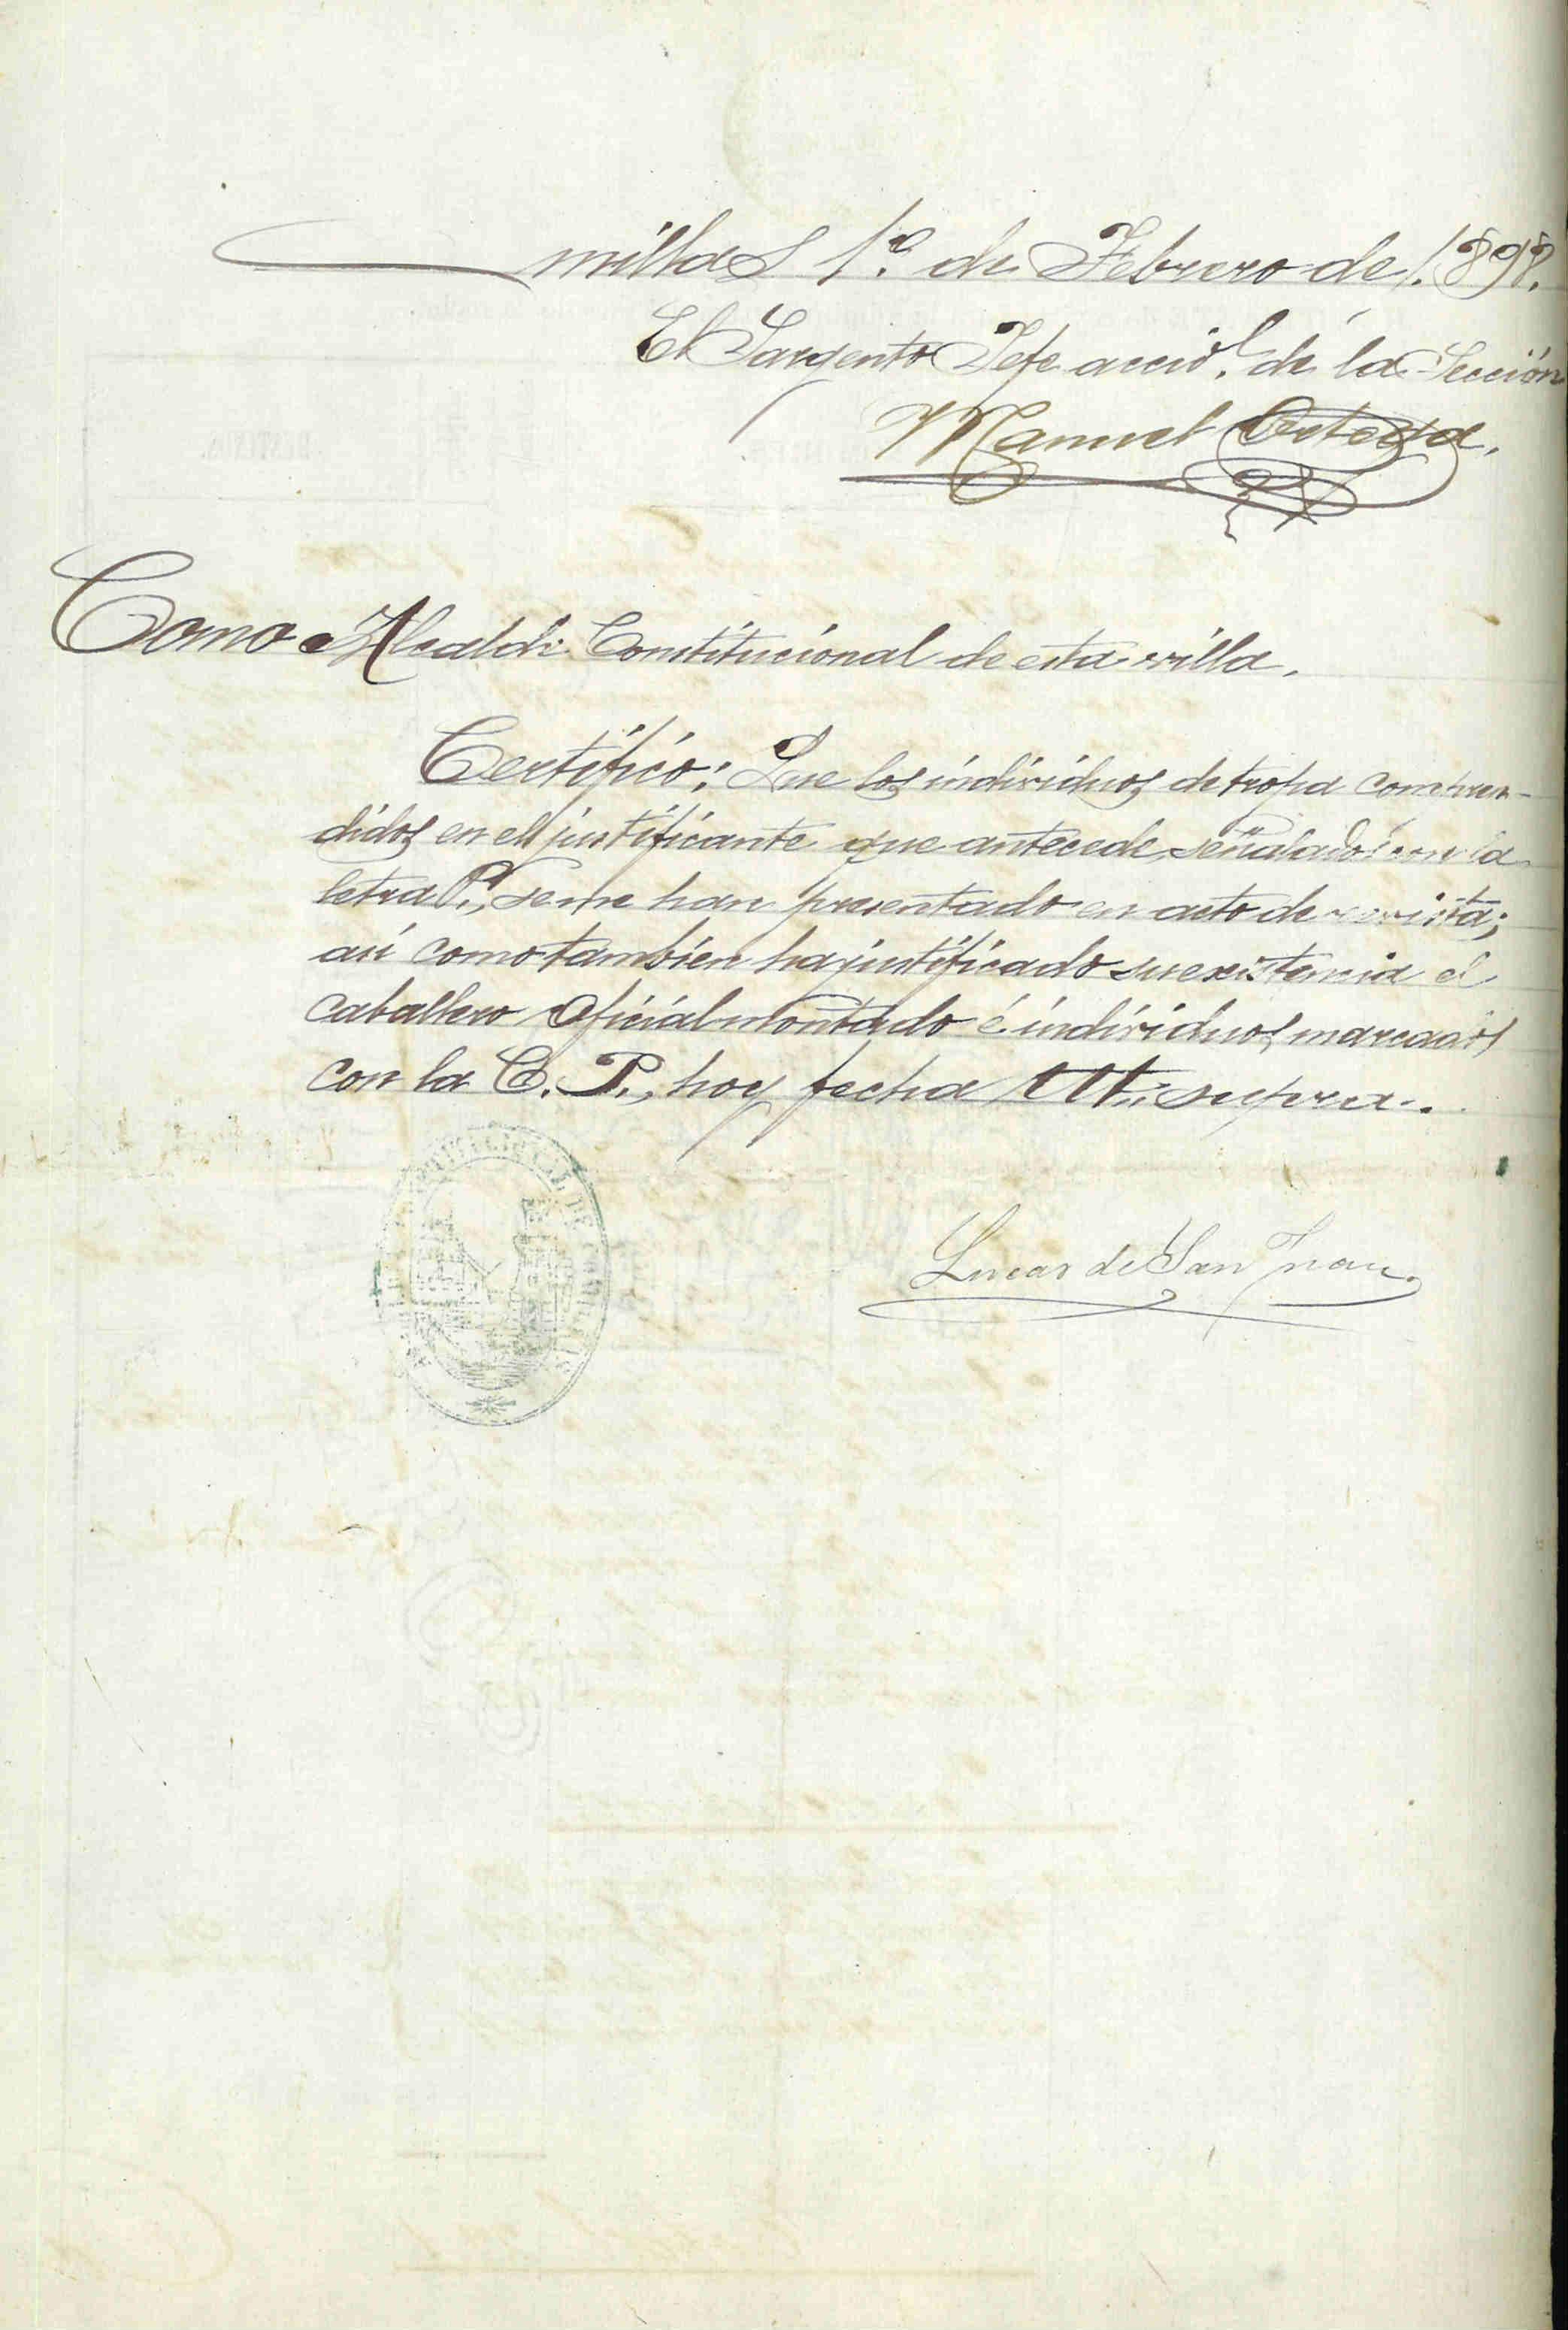 millas 1.º de Febrero de 1.898.
El Sargento Jefe accid.l de la Sección
Manuel Ortega.
Como Alcalde Constitucional de esta villa.
Certifico: Que los individuos de tropa compren-
didos en el justificante que antecede señalados con la
letra P., se me han presentado en acto de revista;
así como tambien ha justificado su existencia el
caballero oficial montado é individuos marcados
con la C. P., hoy fecha Ut. supra.
Lucas de San Juan.